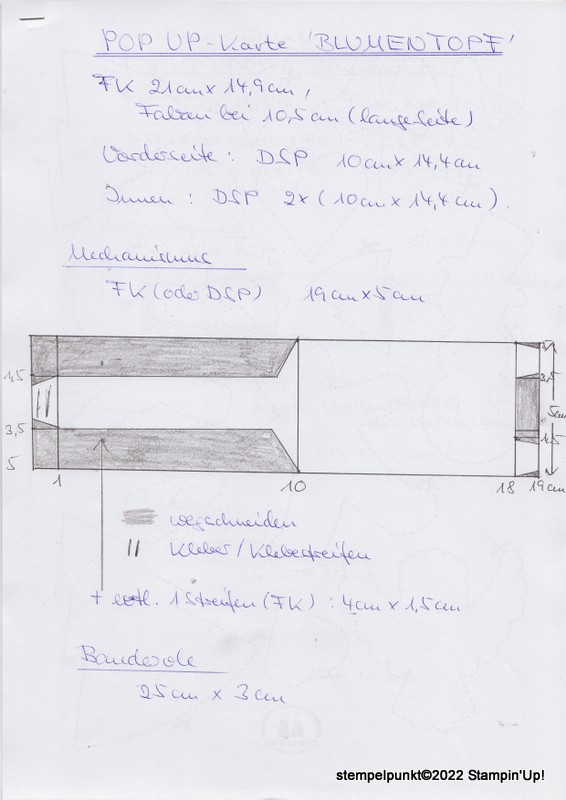 POP UP-Karte 'BLUMENTOPF'
FK 21cm x 14,9cm,
Falzen bei 10,5cm (lange Seite)
Vorderseite: DSP 10cm x 14,4cm
Innen: DSP 2x (10cm x 14,4cm).
Mechanismus
FK (oder DSP) 19cm x 5cm
1,5
3,5
3,5
5cm
1,5
5
1 10 18 19cm
wegschneiden
Kleber/Klebestreifen
+ evtl. 1 Streifen (FK): 4cm x 1,5cm
Banderole
25cm x 3cm
stempelpunkt©2022 Stampin'Up!